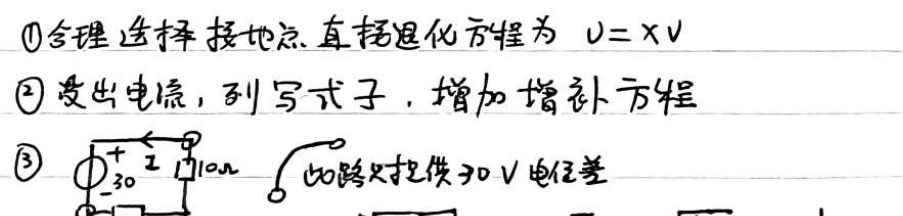 ①合理选择接地点.直接退化方程为 U=XV
②设出电流,列写式子.增加增补方程
③ + I 10Ω 30 - 此路只提供30V电位差